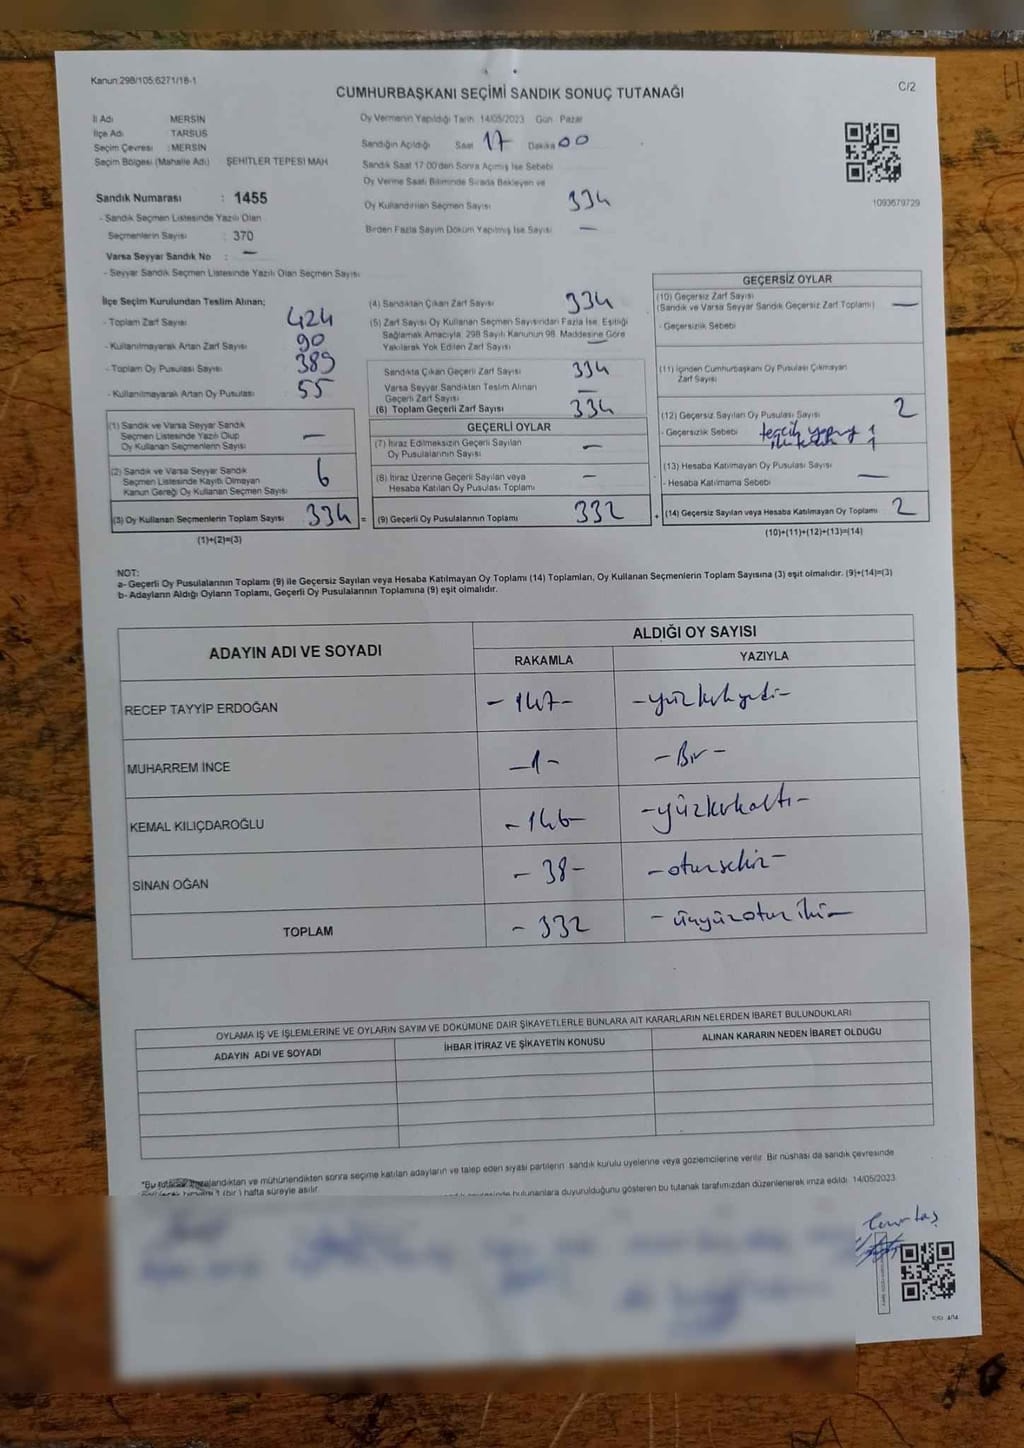 Kanun:298/105;6271/18-1
C/2
CUMHURBAŞKANI SEÇİMİ SANDIK SONUÇ TUTANAĞI
İl Adı MERSİN
İlçe Adı TARSUS
Seçim Çevresi : MERSİN
Seçim Bölgesi (Mahalle Adı) ŞEHİTLER TEPESİ MAH
Sandık Numarası : 1455
- Sandık Seçmen Listesinde Yazılı Olan
Seçmenlerin Sayısı : 370
Varsa Seyyar Sandık No : —
- Seyyar Sandık Seçmen Listesinde Yazılı Olan Seçmen Sayısı
Oy Vermenin Yapıldığı Tarih 14/05/2023 Gün Pazar
Sandığın Açıldığı Saat 17 Dakika 00
Sandık Saat 17:00'den Sonra Açılmış İse Sebebi
Oy Verme Saati Bitiminde Sırada Bekleyen ve
Oy Kullandırılan Seçmen Sayısı 334
Birden Fazla Sayım Döküm Yapılmış İse Sayısı —
1093679729
İlçe Seçim Kurulundan Teslim Alınan;
- Toplam Zarf Sayısı 424
- Kullanılmayarak Artan Zarf Sayısı 90
- Toplam Oy Pusulası Sayısı 389
- Kullanılmayarak Artan Oy Pusulası 55
(1) Sandık ve Varsa Seyyar Sandık
Seçmen Listesinde Yazılı Olup
Oy Kullanan Seçmenlerin Sayısı —
(2) Sandık ve Varsa Seyyar Sandık
Seçmen Listesinde Kayıtlı Olmayan
Kanun Gereği Oy Kullanan Seçmen Sayısı 6
(3) Oy Kullanan Seçmenlerin Toplam Sayısı 334 =
(1)+(2)=(3)
(4) Sandıktan Çıkan Zarf Sayısı 334
(5) Zarf Sayısı Oy Kullanan Seçmen Sayısından Fazla İse, Eşitliği
Sağlamak Amacıyla, 298 Sayılı Kanunun 98. Maddesine Göre
Yakılarak Yok Edilen Zarf Sayısı —
Sandıkta Çıkan Geçerli Zarf Sayısı 334
Varsa Seyyar Sandıktan Teslim Alınan
Geçerli Zarf Sayısı —
(6) Toplam Geçerli Zarf Sayısı 334
GEÇERLİ OYLAR
(7) İtiraz Edilmeksizin Geçerli Sayılan
Oy Pusulalarının Sayısı —
(8) İtiraz Üzerine Geçerli Sayılan veya
Hesaba Katılan Oy Pusulası Toplamı —
(9) Geçerli Oy Pusulalarının Toplamı 332 +
GEÇERSİZ OYLAR
(10) Geçersiz Zarf Sayısı
(Sandık ve Varsa Seyyar Sandık Geçersiz Zarf Toplamı) —
- Geçersizlik Sebebi
(11) İçinden Cumhurbaşkanı Oy Pusulası Çıkmayan
Zarf Sayısı
(12) Geçersiz Sayılan Oy Pusulası Sayısı 2
- Geçersizlik Sebebi 1
1
(13) Hesaba Katılmayan Oy Pusulası Sayısı
- Hesaba Katılmama Sebebi —
(14) Geçersiz Sayılan veya Hesaba Katılmayan Oy Toplamı 2
(10)+(11)+(12)+(13)=(14)
NOT:
a- Geçerli Oy Pusulalarının Toplamı (9) ile Geçersiz Sayılan veya Hesaba Katılmayan Oy Toplamı (14) Toplamları, Oy Kullanan Seçmenlerin Toplam Sayısına (3) eşit olmalıdır. (9)+(14)=(3)
b- Adayların Aldığı Oyların Toplamı, Geçerli Oy Pusulalarının Toplamına (9) eşit olmalıdır.
ADAYIN ADI VE SOYADI ALDIĞI OY SAYISI
RAKAMLA YAZIYLA
RECEP TAYYİP ERDOĞAN -147- -yüzkırkyedi-
MUHARREM İNCE -1- -Bir-
KEMAL KILIÇDAROĞLU -146- -yüzkırkaltı-
SİNAN OĞAN -38- -otuzsekiz-
TOPLAM -332 -üçyüzotuziki-
OYLAMA İŞ VE İŞLEMLERİNE VE OYLARIN SAYIM VE DÖKÜMÜNE DAİR ŞİKAYETLERLE BUNLARA AİT KARARLARIN NELERDEN İBARET BULUNDUKLARI
ADAYIN ADI VE SOYADI İHBAR İTİRAZ VE ŞİKAYETİN KONUSU ALINAN KARARIN NEDEN İBARET OLDUĞU
*Bu tutanak imzalandıktan ve mühürlendikten sonra seçime katılan adayların ve talep eden siyasi partilerin sandık kurulu üyelerine veya gözlemcilerine verilir. Bir nüshası da sandık çevresinde
1 (bir) hafta süreyle asılır. bulunanlara duyurulduğunu gösteren bu tutanak tarafımızdan düzenlenerek imza edildi. 14/05/2023